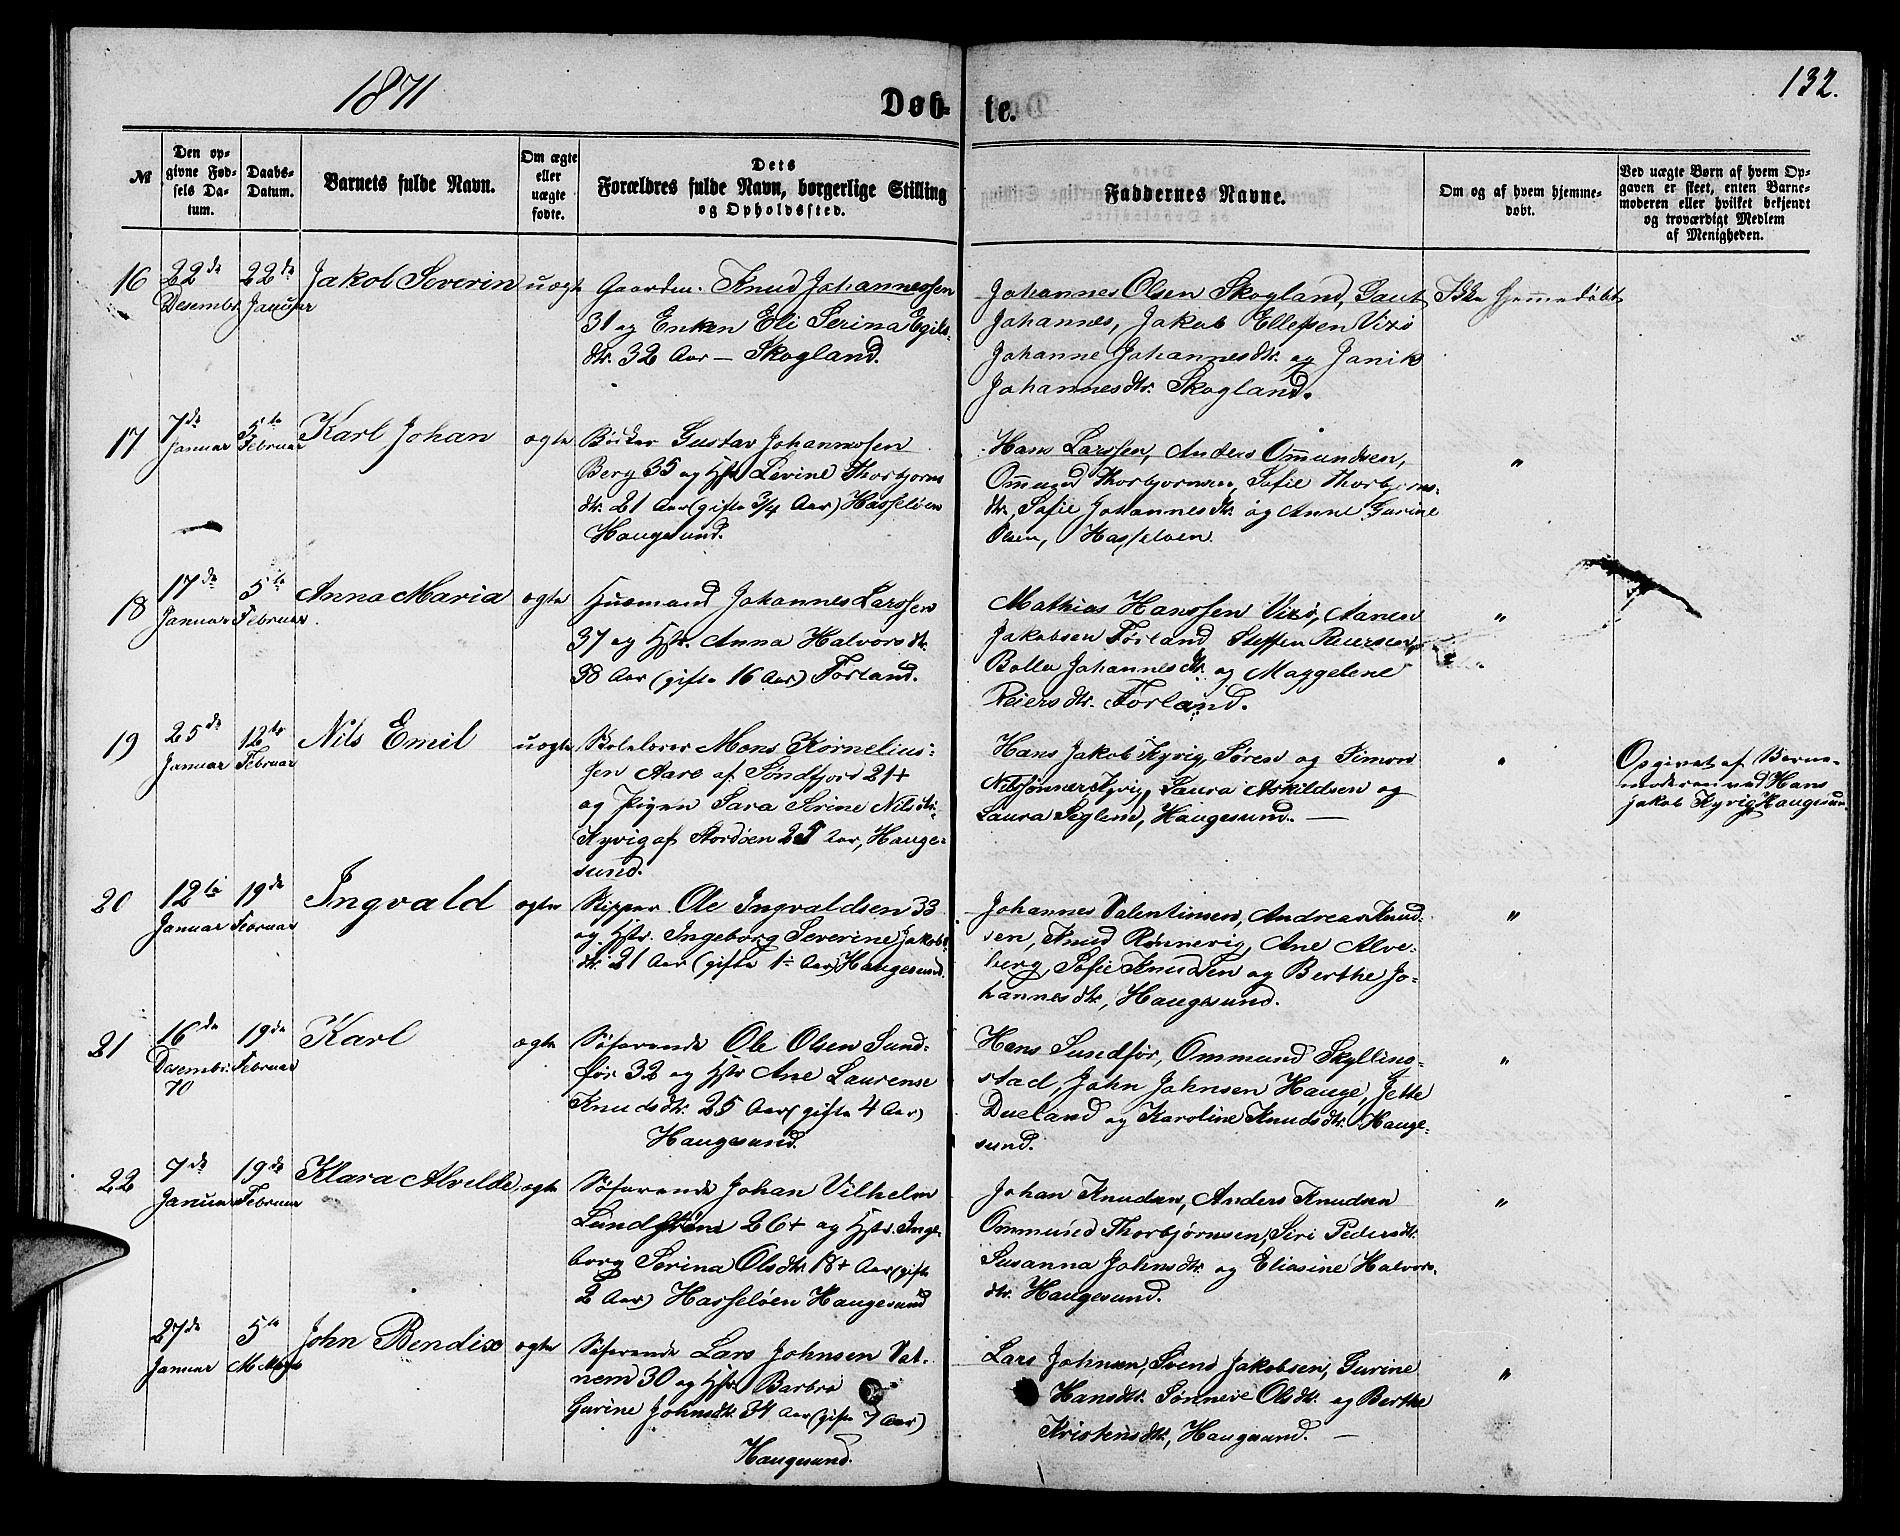 1871
Døb-
te.
132.
№
Den op-
givne Fød-
sels Da-
tum.
Daabs-
Datum.
Barnets fulde Navn.
Om ægte
eller
uægte
fødte.
Dets
Forældres fulde Navn, borgerlige Stilling
og Opholdssted.
Faddernes Navne.
Om og af hvem hjemme-
døbt.
Ved uægte Børn af hvem Op-
gaven er skeet, enten Barne-
moderen eller hvilket bekjendt
og troværdigt Medlem
af Menigheden.
16
22de
Desembr
22de
Januar
Jakob Severin
uægte
Gaardm. Knud Johannessen
31 og Enken Eli Serina Egils-
dtr. 32 Aar — Skogland.
Johannes Olsen Skogland, Gaut
Johannes, Jakob Ellefsen Vixø
Johanne Johannesdtr. og Janik
Johannesdtr. Skogland.
Ikke hjemmedøbt
17
7de
Januar
5te
Februar
Karl Johan
ægte
Bødker Gustav Johannesen
Berg 35 og Hstr Levine Thorbjørns
dtr. 21 Aar (gifte 3/4 Aar) Hasseløen
Haugesund.
Hans Larssen, Anders Omundsen,
Ommund Thorbjørnsen, Sofie Thorbjørns-
dtr, Sofie Johannesdtr. og Anne Gurine
Olsen, Hasseløen.
"
18
17de
Januar
5te
Februar
Anna Maria
ægte
Husmand Johannes Larssen
37 og Hstr. Anna Halvorsdtr.
38 Aar (gifte 16 Aar) Førland.
Mathias Hanssen Vixø, Aanen
Jakobsen Førland Steffen Reiersen
Bolla Johannesdtr. og Maggelene
Reiersdtr. Førland.
"
19
25de
Januar
12te
Februar
Nils Emil
uægte
Skolelærer Mons Kornelius-
sen Aarø af Søndfjord 21+
og Pigen Sara Serine Nilsdtr.
Kyvig af Stordøen 25 Aar, Hauge-
sund.
Hans Jakob Kyvig, Søren og Simon
Nilssønner Kyvig, Laura Askildsen og
Laura Seglem, Haugesund. —
"
Opgivet af Barne-
moderen ved Hans
Jakob Kyvig Haugesund
20
12te
Januar
19de
Februar
Ingvald
ægte
Skipper Ole Ingvaldsen 33
og Hstr. Ingeborg Severine Jakobs-
dtr. 21 Aar (gifte 1 Aar) Haugesund.
Johannes Valentinsen, Andreas Knud-
sen, Knud Rønnevig, Ane Alve-
berg, Sofie Knudsen og Berthe Jo-
hannesdtr, Haugesund.
"
21
16de
Desembr.
70
19de
Februar
Karl
ægte
Søfarende Ole Olsen Sund-
før 32 og Hstr Ane Laurense
Knudsdtr. 25 Aar (gifte 4 Aar)
Haugesund.
Hans Sundfør, Ommund Skyllings-
stad, John Johnsen Hauge, Jette
Dueland og Karoline Knudsdtr. Hauge-
sund.
"
22
7de
Januar
19de
Februar
Klara Alvilde
ægte
Søfarende Johan Vilhelm
Lundstrøm 26+ og Hstr. Inge-
borg Serina Olsdtr. 18+ Aar (gifte
2 Aar) Hasseløen Haugesund
Johan Knudsen, Anders Knudsen
Ommund Thorbjørnsen, Siri Pedersdtr.
Susanna Johnsdtr. og Eliasine Halvors-
dtr. Haugesund.
"
27de
Januar
5te
Marts
John Bendix
ægte
Søfarende Lars Johnsen Vat-
nem 30 og Hstr Barbro
Gurine Johnsdtr. 34 Aar (gifte 7 Aar)
Haugesund.
Lars Johnsen, Svend Jakobsen, Gurine
Hansdtr. Sønneve Olsdtr. og Berthe
Kristensdtr, Haugesund. —
"